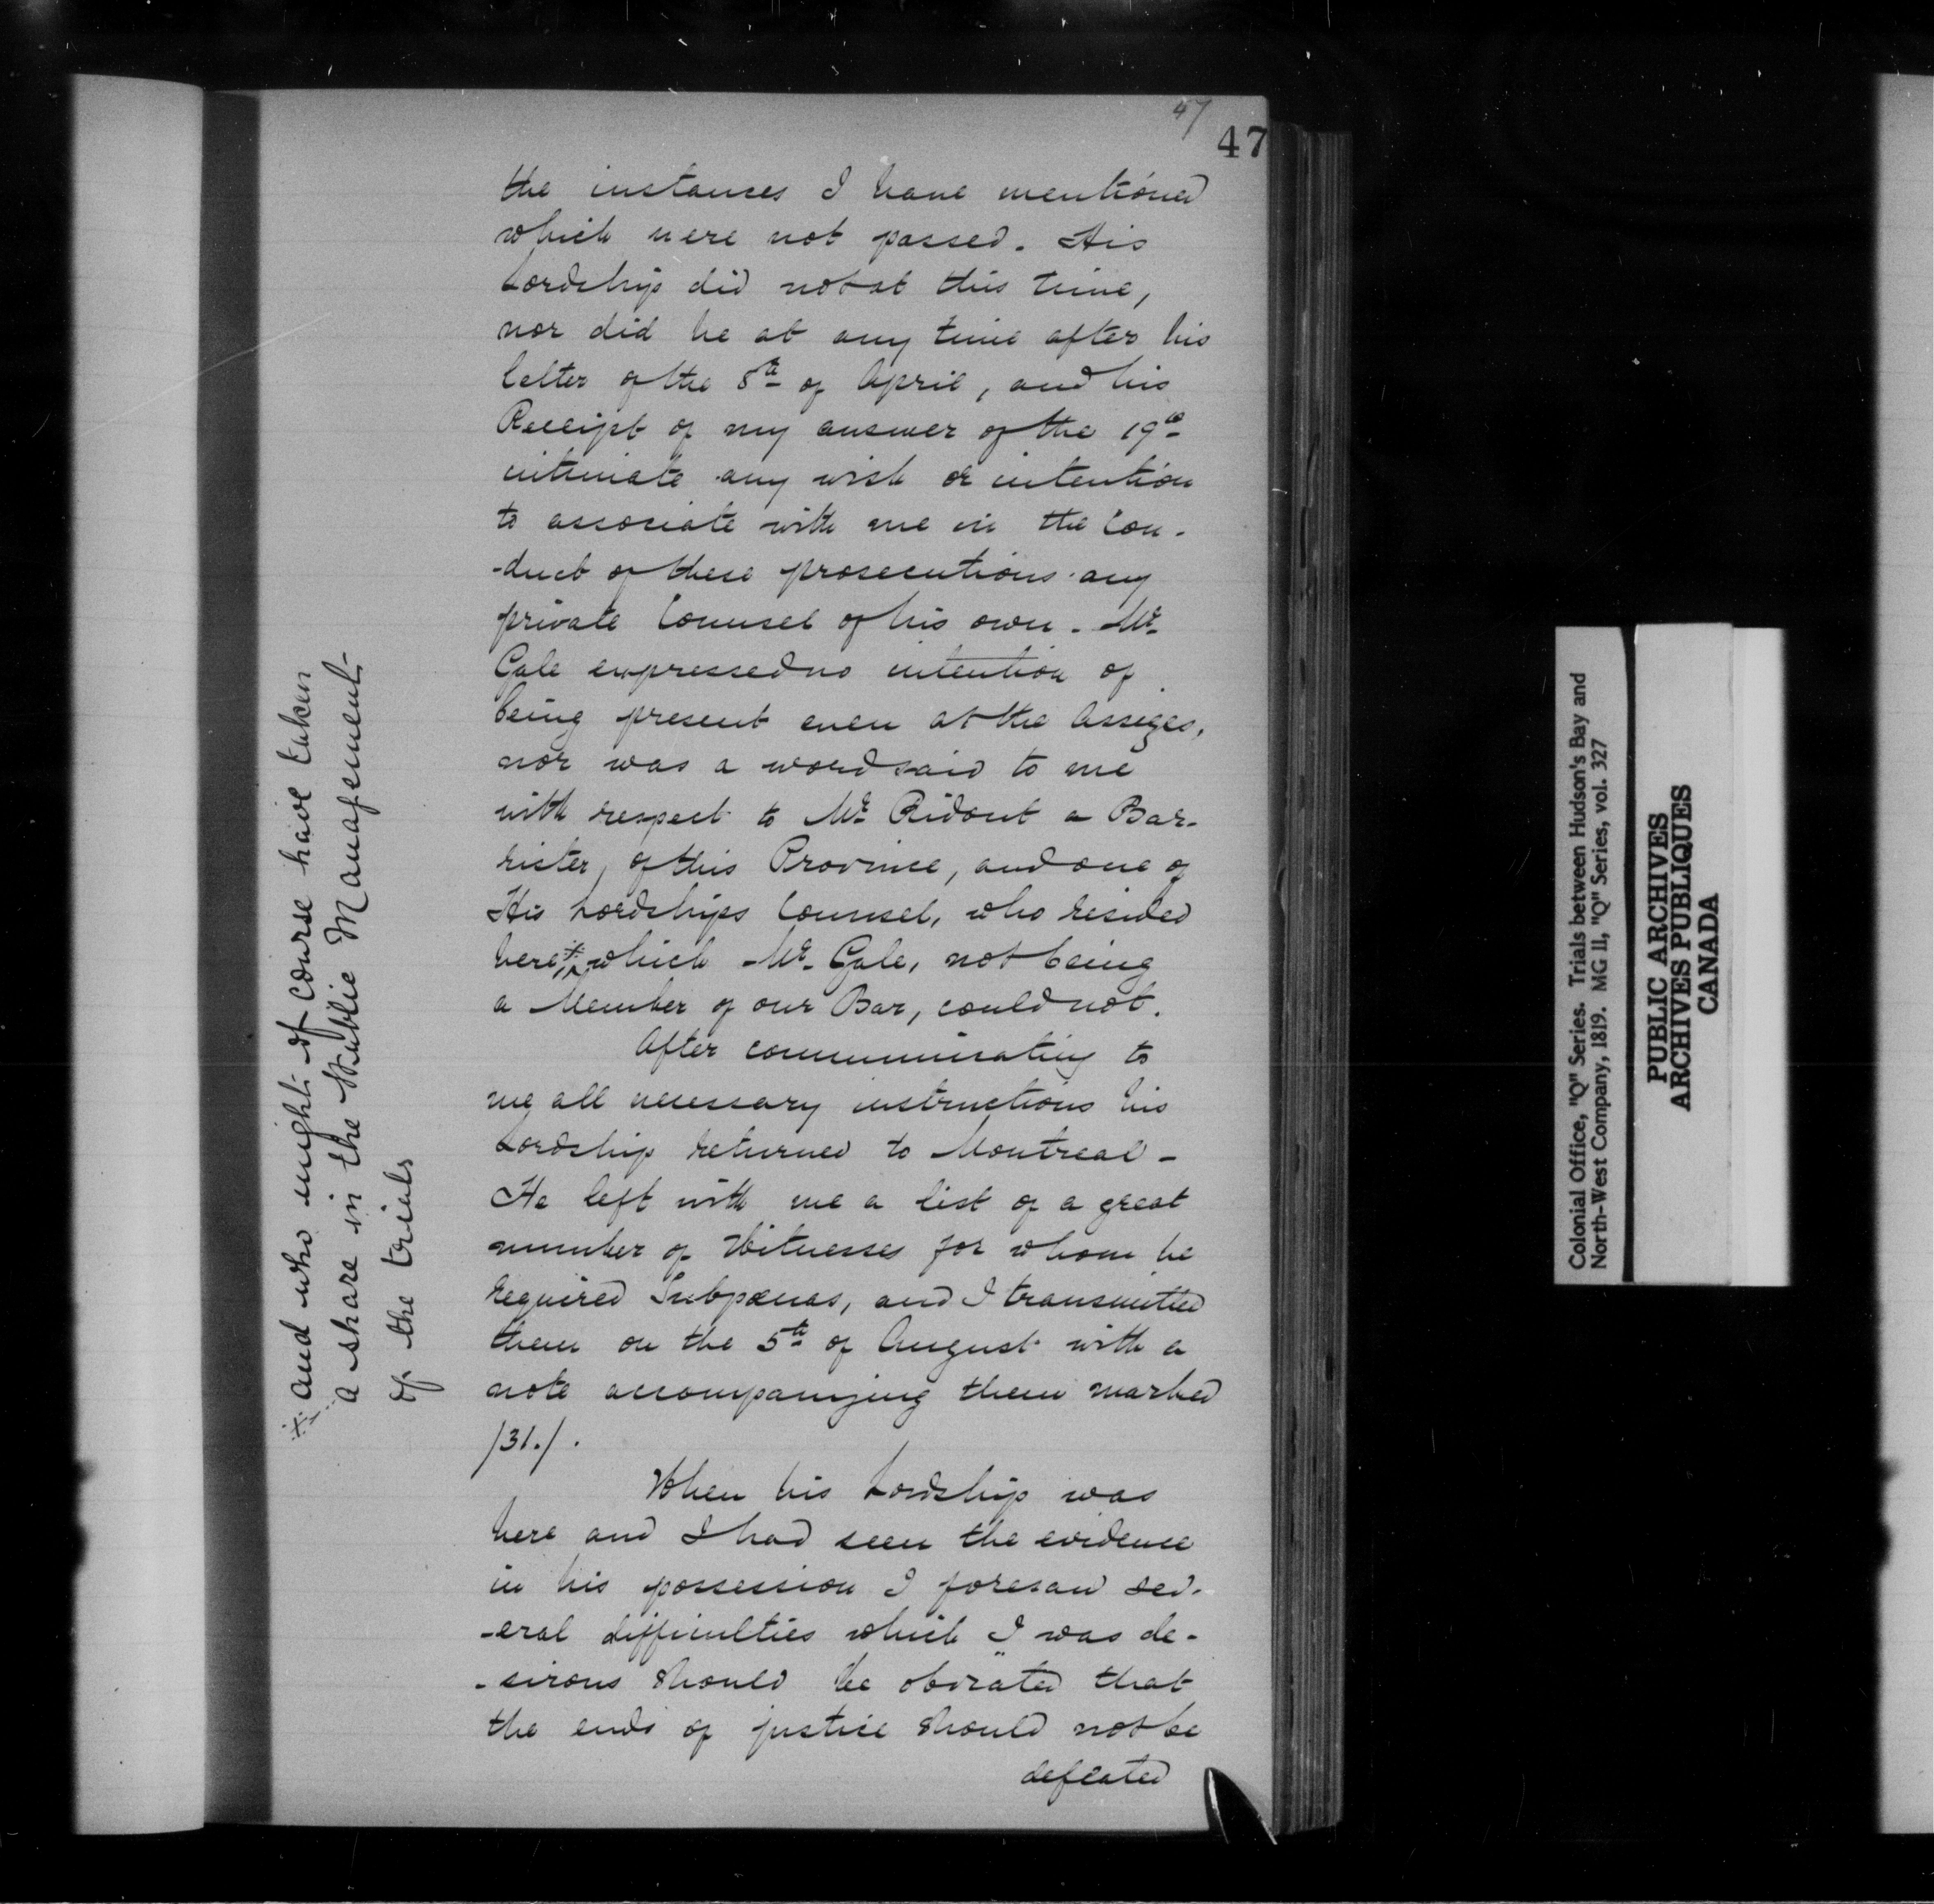 47
47
the instances I have mentioned
which were not passed. His
Lordship did not at this time,
nor did he at any time after his
letter of the 8th of April, and his
Receipt of my answer of the 19th
intimate any wish or intention
to associate with me in the Con-
-duct of these prosecutions any
private Counsel of his own. Mr
Gale expressed no intention of
being present even at the Assizes,
nor was a word said to me
with respect to Mr Ridout a Bar-
rister, of this Province, and one of
His Lordships Counsel, who resided
here, which Mr Gale, not being
a Member of our Bar, could not.
After communicating to
me all necessary instructions his
Lordship returned to Montreal -
He left with me a list of a great
number of Witnesses for whom he
required Subpœnas, and I transmitted
them on the 5th of August with a
note accompanying them marked
/31./.
When his Lordship was
here and I had seen the evidence
in his possession I foresaw sev-
-eral difficulties which I was de-
-sirous should be obviated that
the ends of justice should not be
defeated
and who might of course have taken
a share in the Public Management
of the trials
Colonial Office, "Q" Series. Trials between Hudson's Bay and
North-West Company, 1819. MG 11, "Q" Series, vol. 327
PUBLIC ARCHIVES
ARCHIVES PUBLIQUES
CANADA